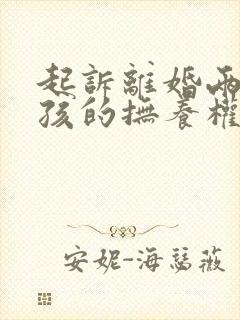 起訴離婚兩
孩的撫養權
安妮-海瑟薇